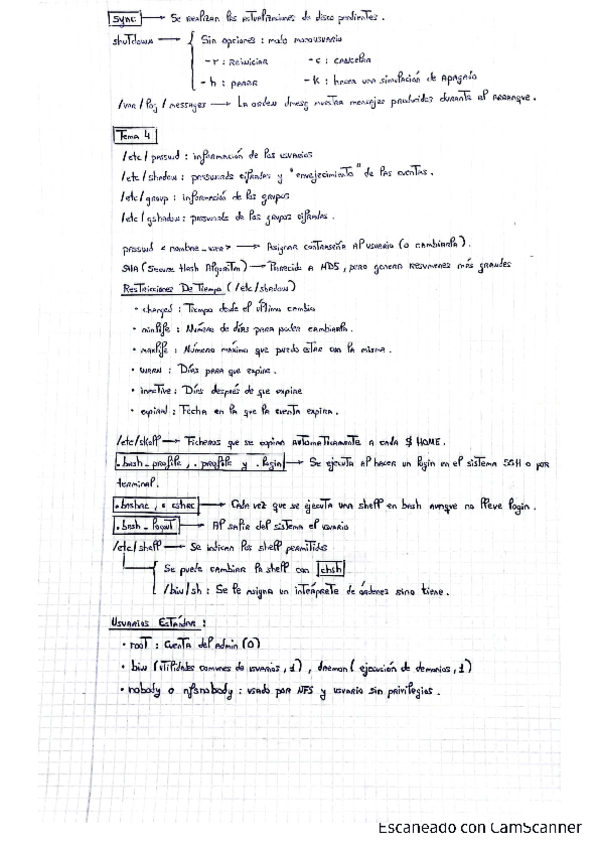 sync → Se realizan las actualizaciones de disco pendientes.
shutdown → Sin opciones : modo monousuario
-r : Reiniciar -c : cancelar
-h : parar -k : hacer una simulación de apagado
/var/log/messages → La orden dmesg muestra mensajes producidos durante el arranque.
Tema 4
/etc/passwd : información de los usuarios
/etc/shadow : passwords cifradas y "envejecimiento" de las cuentas.
/etc/group : información de los grupos
/etc/gshadow : passwords de los grupos cifradas.
passwd < nombre_user> → Asignar contraseña al usuario (o cambiarla).
SHA (Secure Hash Algorithm) → Parecido a MD5, pero generan resúmenes más grandes
Restricciones De Tiempo (/etc/shadow)
• changed : Tiempo desde el último cambio
• minlife : Número de días para poder cambiarla.
• maxlife : Número máximo que puedo estar con la misma.
• warn : Días para que expire.
• inactive : Días después de que expire
• expired : Fecha en la que la cuenta expira.
/etc/skell → Ficheros que se copian automáticamente a cada $HOME.
.bash_profile, .profile y .login → Se ejecuta al hacer un login en el sistema SSH o por
terminal.
.bashrc, .cshrc → Cada vez que se ejecuta una shell en bash aunque no lleve login.
.bash_logout → Al salir del sistema el usuario
/etc/shell → Se indican los shell permitidos
Se puede cambiar la shell con chsh
/bin/sh : Se le asigna un intérprete de órdenes sino tiene.
Usuarios Estándar :
• root : cuenta del admin (0)
• bin (utilidades comunes de usuarios, 1), daemon (ejecución de demonios, 1)
• nobody o nfsnobody : usado por NFS y usuario sin privilegios.
Escaneado con CamScanner